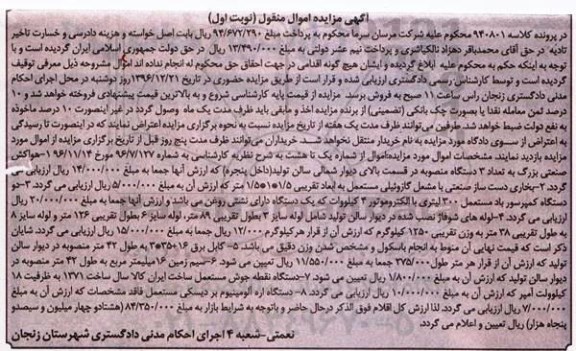 آگهی مزایده اموال منقول (نوبت اول)
در پرونده کلاسه 940801 محکوم علیه شرکت مرسان سرما محکوم به پرداخت مبلغ 94/672/290 ریال بابت اصل خواسته و هزینه دادرسی و خسارت تاخیر
تادیه در حق آقای محمدباقر دهزاد نالکیاشری و پرداخت نیم عشر دولتی به مبلغ 13/490/000 ریال در حق دولت جمهوری اسلامی ایران گردیده است و با
توجه به اینکه حکم به محکوم علیه ابلاغ گردیده و ایشان هیچ گونه اقدامی در جهت احقاق حق محکوم له انجام نداده اند اموال مشروحه ذیل معرفی توقیف
گردیده است و توسط کارشناس رسمی دادگستری ارزیابی شده و قرار است از طریق مزایده حضوری در تاریخ 1396/12/21 روز دوشنبه در محل اجرای احکام
مدنی دادگستری زنجان راس ساعت 11 صبح به فروش برسد. مزایده از قیمت پایه کارشناسی شروع و به بالاترین قیمت پیشنهادی فروخته خواهد شد و 10
درصد ثمن معامله نقدا یا بصورت چک بانکی (تضمینی) از برنده مزایده اخذ و مابقی باید ظرف مدت یک ماه وصول گردد در غیر اینصورت 10 درصد ماخوذه
به نفع دولت ضبط خواهد شد. طرفین می‌توانند ظرف مدت یک هفته از تاریخ مزایده نسبت به نحوه برگزاری مزایده اعتراض نمایند که در اینصورت تا رسیدگی
به اعتراض از سوی دادگاه مورد مزایده به نام خریدار منتقل نخواهد شد. خریداران می‌توانند ظرف مدت پنج روز قبل از تاریخ برگزاری مزایده از اموال مورد
مزایده بازدید نمایند. مشخصات اموال مورد مزایده:اموال از شماره یک تا هشت به شرح نظریه کارشناسی به شماره 96/7/127 مورخ 96/11/14 1-هواکش
صنعتی بزرگ به تعداد 3 دستگاه منصوبه در قسمت بالای دیوار شمالی سالن تولید(داخل پنجره) که ارزش آنها جمعا به مبلغ 14/000/000 ریال ارزیابی می
گردد. 2-بخاری دست ساز صنعتی با مشعل گازوئیلی مستعمل به ابعاد تقریبی 1/5*1*1/5 متر که ارزش آن به مبلغ 5/000/000 ریال ارزیابی می گردد. 3-دو
دستگاه کمپرسور باد مستعمل 300 لیتری با الکتروموتور 4 کیلووات که یک دستگاه دارای نشتی روغن می باشد و ارزش آنها جمعا به مبلغ 20/000/000 ریال
ارزیابی می گردد. 4-لوله های شوفاژ نصب شده در دیوار سالن تولید شامل لوله سایز 2 بطول تقریبی 89 متر، لوله سایز 6 بطول تقریبی 126 متر و لوله سایز 8
به طول تقریبی 38 متر به وزن تقریبی 1250 کیلوگرم که ارزش آن از قرار هر کیلوگرم 12/000 ریال جمعا به مبلغ 15/000/000 ریال ارزیابی می گردد. شایان
ذکر است که قیمت نهایی آن منوط به انجام باسکول و مشخص شدن وزن دقیق می باشد. 5- کابل برق 16+35*3 به طول 42 متر منصوبه در دیوار سالن
تولید که ارزش آن از قرار هر متر طول 275/000 جمعا به مبلغ 11/550/000 ریال تعیین می شود. 6-سیم زمین 16میلیمتر مربع به طول 42 متر منصوبه در
دیوار سالن تولید که ارزش آن به مبلغ 1/800/000 ریال تعیین می شود. 7-دستگاه نقطه جوش مستعمل ساخت ایران کالا سال ساخت 1371 به ظرفیت 18
کیلوولت آمپر که ارزش آن به مبلغ 10/000/000 ریال ارزیابی می گردد. 8-دستگاه اره آلومینیوم بر دیسکی مستعمل فاقد مشخصات که ارزش آن به مبلغ
7/000/000 ریال ارزیابی می گردد. لذا ارزش کل اقلام فوق الذکر درحال حاضر و باتوجه به شرایط بازار به مبلغ 84/350/000 (هشتادو چهار میلیون و سیصدو
پنجاه هزار) ریال تعیین و اعلام می گردد.
نعمتی-شعبه 4 اجرای احکام مدنی دادگستری شهرستان زنجان